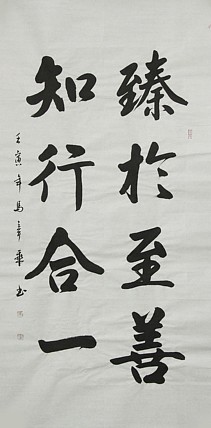 臻於至善
知行合一
壬寅年馬彥華书